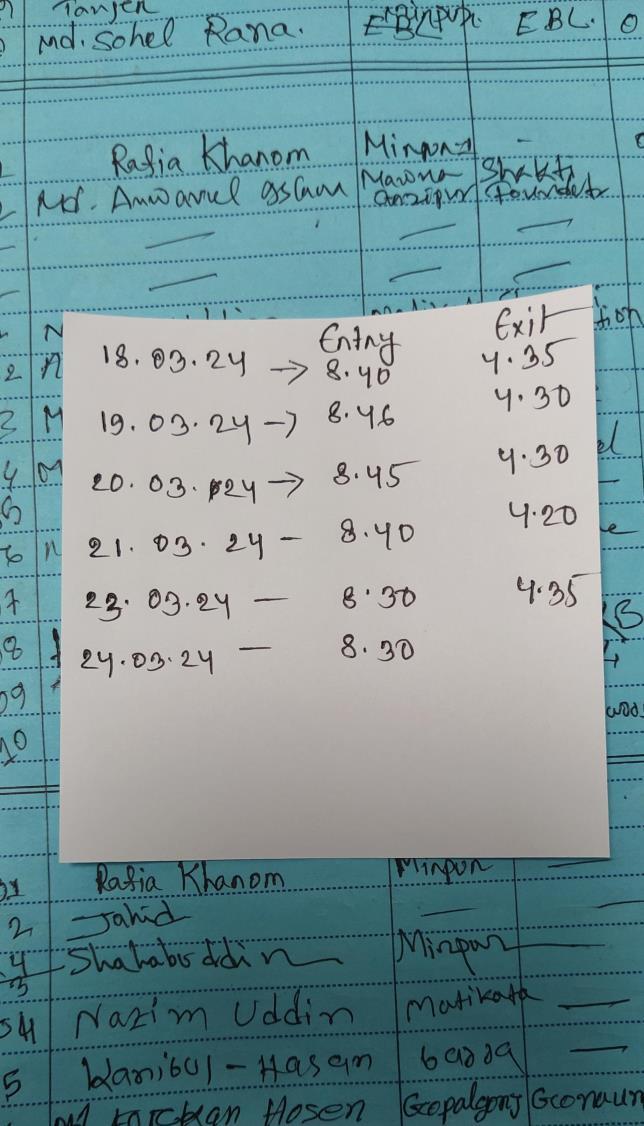 Tanjer
Md. Sohel Rana. EBL Mirpur. EBL. 0
Rafia Khanom Mirpur -
Md. Anwarul Islam Mawna Shakti
Gazipur Foundat
Entry Exit
18.03.24 → 8.40 4.35
19.03.24 → 8.46 4.30
20.03.24 → 8.45 4.30
21.03.24 - 8.40 4.20
23.03.24 — 8.30 4.35
24.03.24 — 8.30
Rafia Khanom Mirpur —
2 Jahid — —
Shahabuddin Mirpur —
Nazim Uddin Matikata —
5 Hasan —
Hosen Gopalgonj